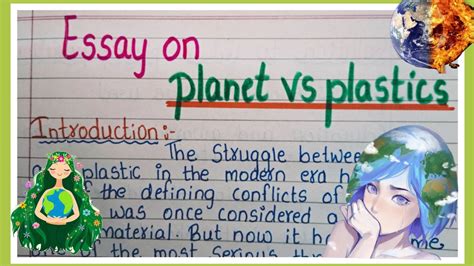 Essay on
planet vs plastics
Introduction:-
The Struggle between
plastic in the modern era
of the defining conflicts of
was once considered
material. But now it
of the most serious